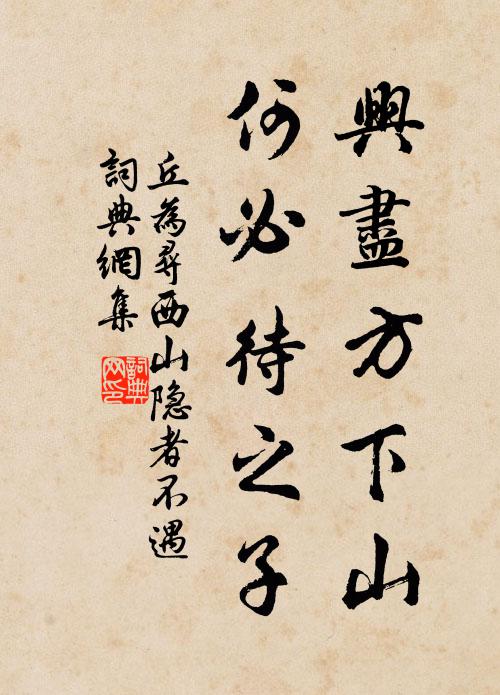 興盡方下山
何必待之子
丘為尋西山隐者不遇
詞典網集
詞典
网印